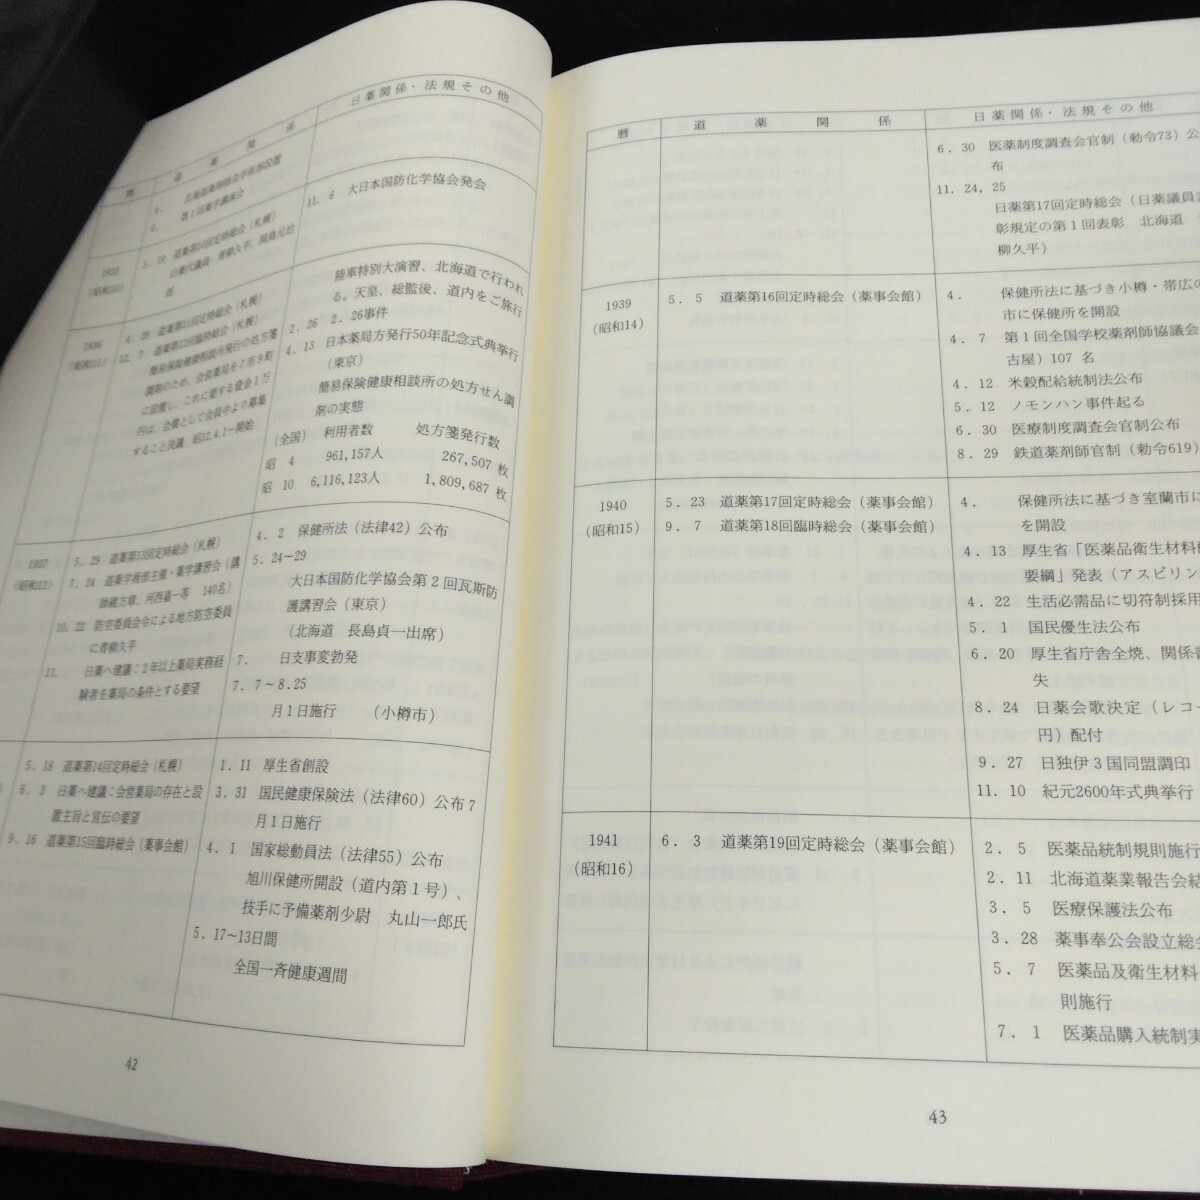 暦
道 薬 関 係
日薬関係・法規その他
6. 北海道薬剤師会学術部設置
6. 第1回薬学講演会
11. 6 大日本国防化学協会発会
1935
(昭和10)
5. 18 道薬第10回定時総会(札幌)
日薬代議員 青柳久平、
陸軍特別大演習、北海道で行われ
る。天皇、総監後、道内をご旅行
1936
(昭和11)
4. 28 道薬第11回定時総会(札幌)
12. 7 道薬第12回臨時総会(札幌)
簡易保険健康相談所発行の処方箋
調剤のため、会営薬局を7市9町
に設置し、これに要する資金1万
円は、会債として会員中より募集
すること決議 昭12.4.1~開始
2. 26 2、26事件
4. 13 日本薬局方発行50年記念式典挙行
(東京)
簡易保険健康相談所の処方せん調
剤の実態
(全国) 利用者数 処方箋発行数
昭 4 961,157人 267,507 枚
昭 10 6,116,123人 1,809,687 枚
1937
(昭和12)
5. 29 道薬第13回定時総会(札幌)
7. 24 道薬学術部主催・薬学講習会(講
師緒方章、河西嘉一等 140名)
10. 22 防空委員会令による地方防空委員
に青柳久平
11. 日薬へ建議:2年以上薬局実務経
験者を薬局の条件とする要望
4. 2 保健所法(法律42)公布
5. 24~29
大日本国防化学協会第2回瓦斯防
護講習会(東京)
(北海道 長島貞一出席)
7. 日支事変勃発
7. 7~8.25
月1日施行 (小樽市)
5. 18 道薬第14回定時総会(札幌)
6. 3 日薬へ建議:会営薬局の存在と設
置主旨と宣伝の要望
9. 16 道薬第15回臨時総会(薬事会館)
1. 11 厚生省創設
3. 31 国民健康保険法(法律60)公布7
月1日施行
4. 1 国家総動員法(法律55)公布
旭川保健所開設(道内第1号)、
技手に予備薬剤少尉 丸山一郎氏
5. 17~13日間
全国一斉健康週間
42
暦
道 薬 関 係
日薬関係・法規その他
6. 30 医薬制度調査会官制(勅令73)公
布
11. 24, 25
日薬第17回定時総会(日薬議員表
彰規定の第1回表彰 北海道
柳久平)
1939
(昭和14)
5. 5 道薬第16回定時総会(薬事会館)
4. 保健所法に基づき小樽・帯広の
市に保健所を開設
4. 7 第1回全国学校薬剤師協議会
古屋)107 名
4. 12 米穀配給統制法公布
5. 12 ノモンハン事件起る
6. 30 医療制度調査会官制公布
8. 29 鉄道薬剤師官制(勅令619)
1940
(昭和15)
5. 23 道薬第17回定時総会(薬事会館)
9. 7 道薬第18回臨時総会(薬事会館)
4. 保健所法に基づき室蘭市に
を開設
4. 13 厚生省「医薬品衛生材料配
要綱」発表(アスピリン
4. 22 生活必需品に切符制採用
5. 1 国民優生法公布
6. 20 厚生省庁舎全焼、関係書
失
8. 24 日薬会歌決定(レコー
円)配付
9. 27 日独伊3国同盟調印
11. 10 紀元2600年式典挙行
1941
(昭和16)
6. 3 道薬第19回定時総会(薬事会館)
2. 5 医薬品統制規則施行
2. 11 北海道薬業報告会結
3. 5 医療保護法公布
3. 28 薬事奉公会設立総会
5. 7 医薬品及衛生材料
則施行
7. 1 医薬品購入統制実
43